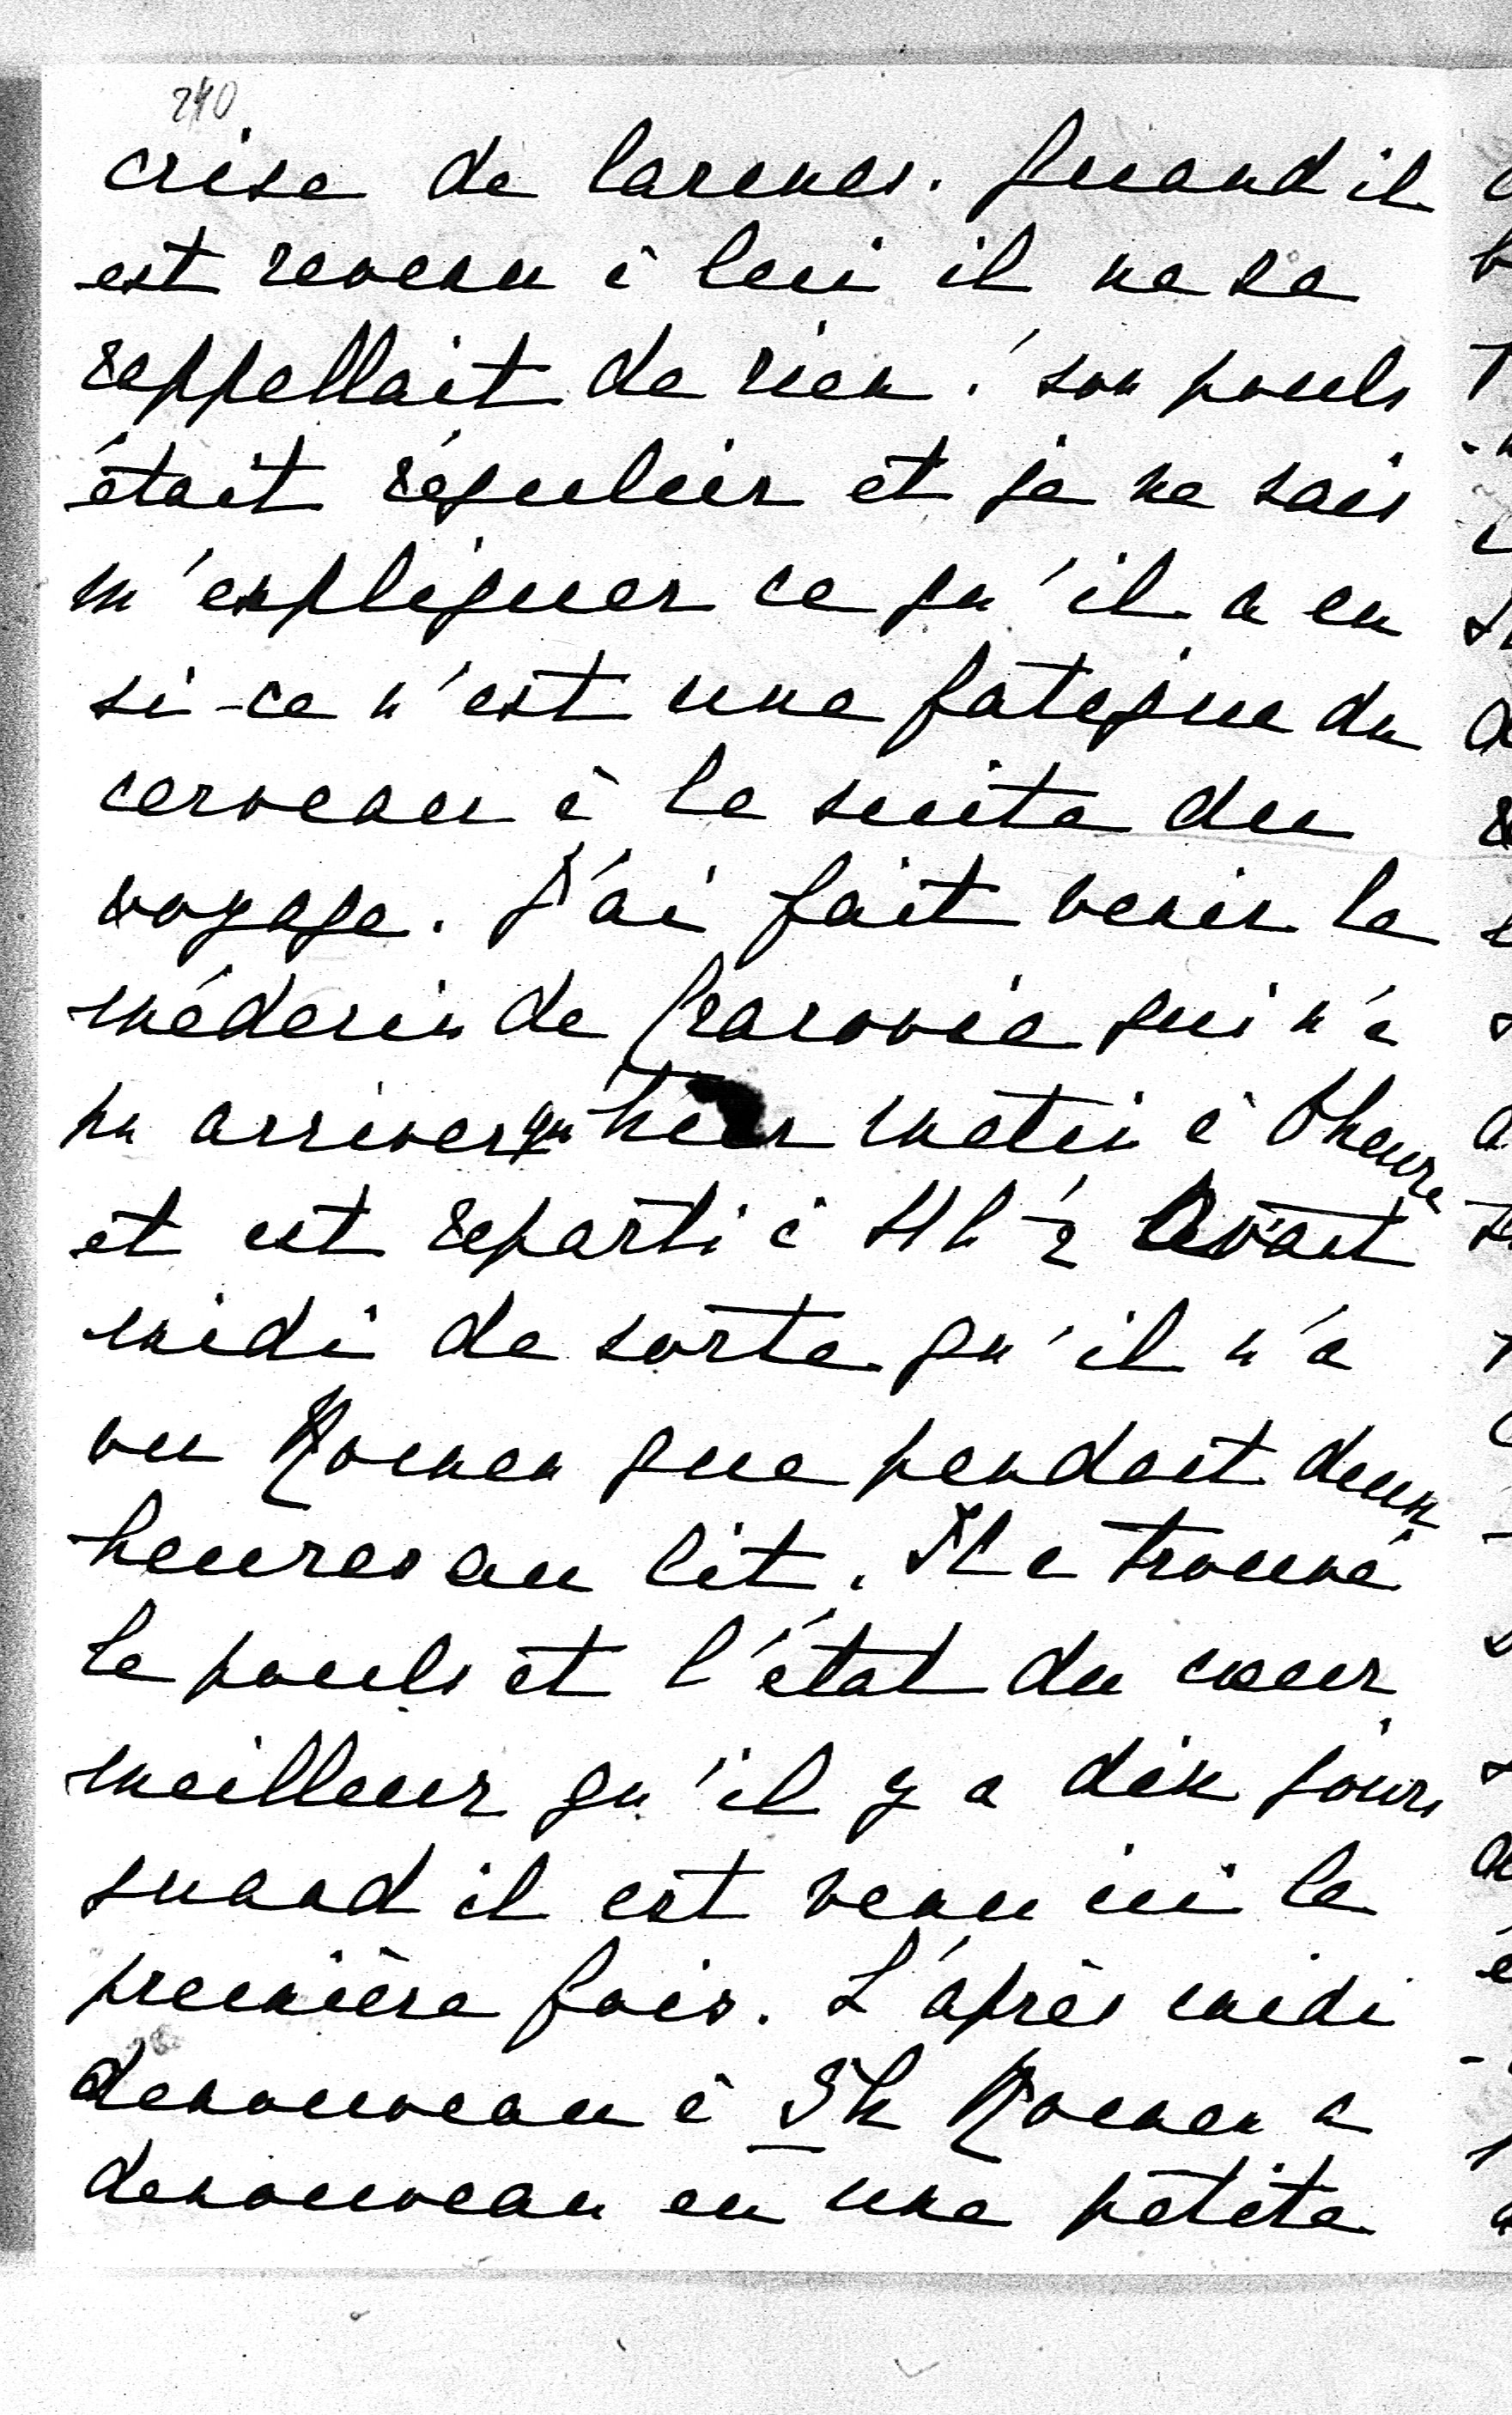 240
crise de larmes. Quand il
est revenu à lui il ne se
rappellait de rien! son pouls
était régulier et je ne sais
m'expliquer ce qu'il a eu
si-ce n'est une fatigue du
cerveau à la suite du
voyage. J'ai fait venir le
médecin de Cracovie qui n'a
pu arriver qu' hier matin à 8 heure
et est reparti à 11 h ½ avant
midi de sorte qu'il n'a
vu Roman que pendant deux
heures au lit. Il a trouvé
le pouls et l'état du cœur
meilleur qu'il y a dix jours
quand il est venu ici la
première fois. L'après midi
denouveau à 5h Roman a
denouveau eu une petite